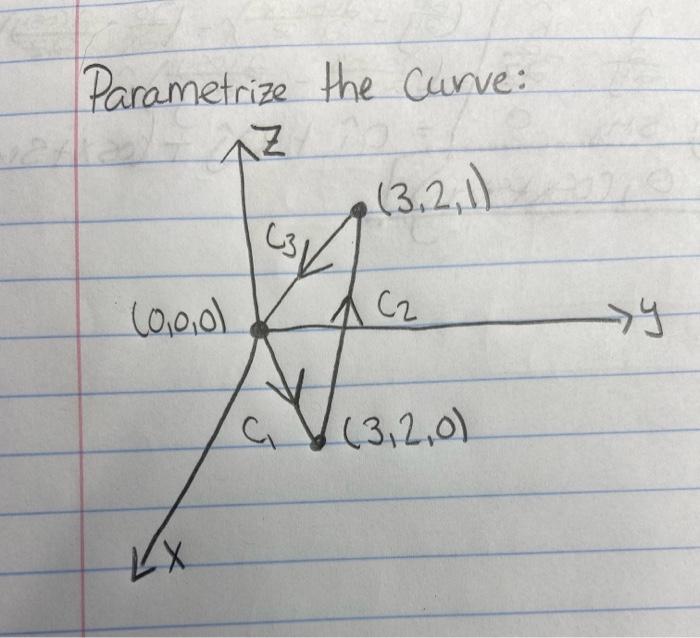 Parametrize the Curve:
Z
(3,2,1)
C3
(0,0,0)
C2
y
C1
(3,2,0)
X